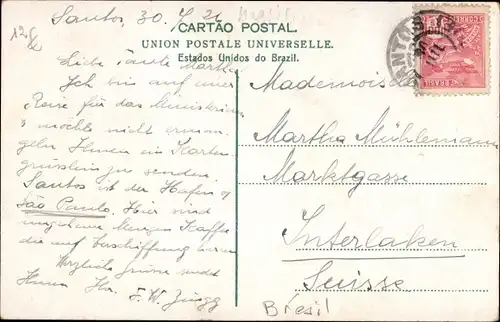 Santos, 30. 7. 21
CARTÃO POSTAL.
UNION POSTALE UNIVERSELLE.
Estados Unidos do Brazil.
Liebe Tante Martha
Ich bin auf einer
Reise für das Ministerium
& möchte nicht erman-
geln Ihnen ein Karten-
grüsslein zu senden.
Santos ist der Hafen v
São Paulo. Hier sind
ungeheure Mengen Kaffee
die auf Verschiffung warten
Herzliche Grüsse sendet
Ihnen Ihr F. W. Zingg
Mademoiselle
Martha Mühlemann
Marktgasse
Interlaken
Suisse
Brésil
SANTOS